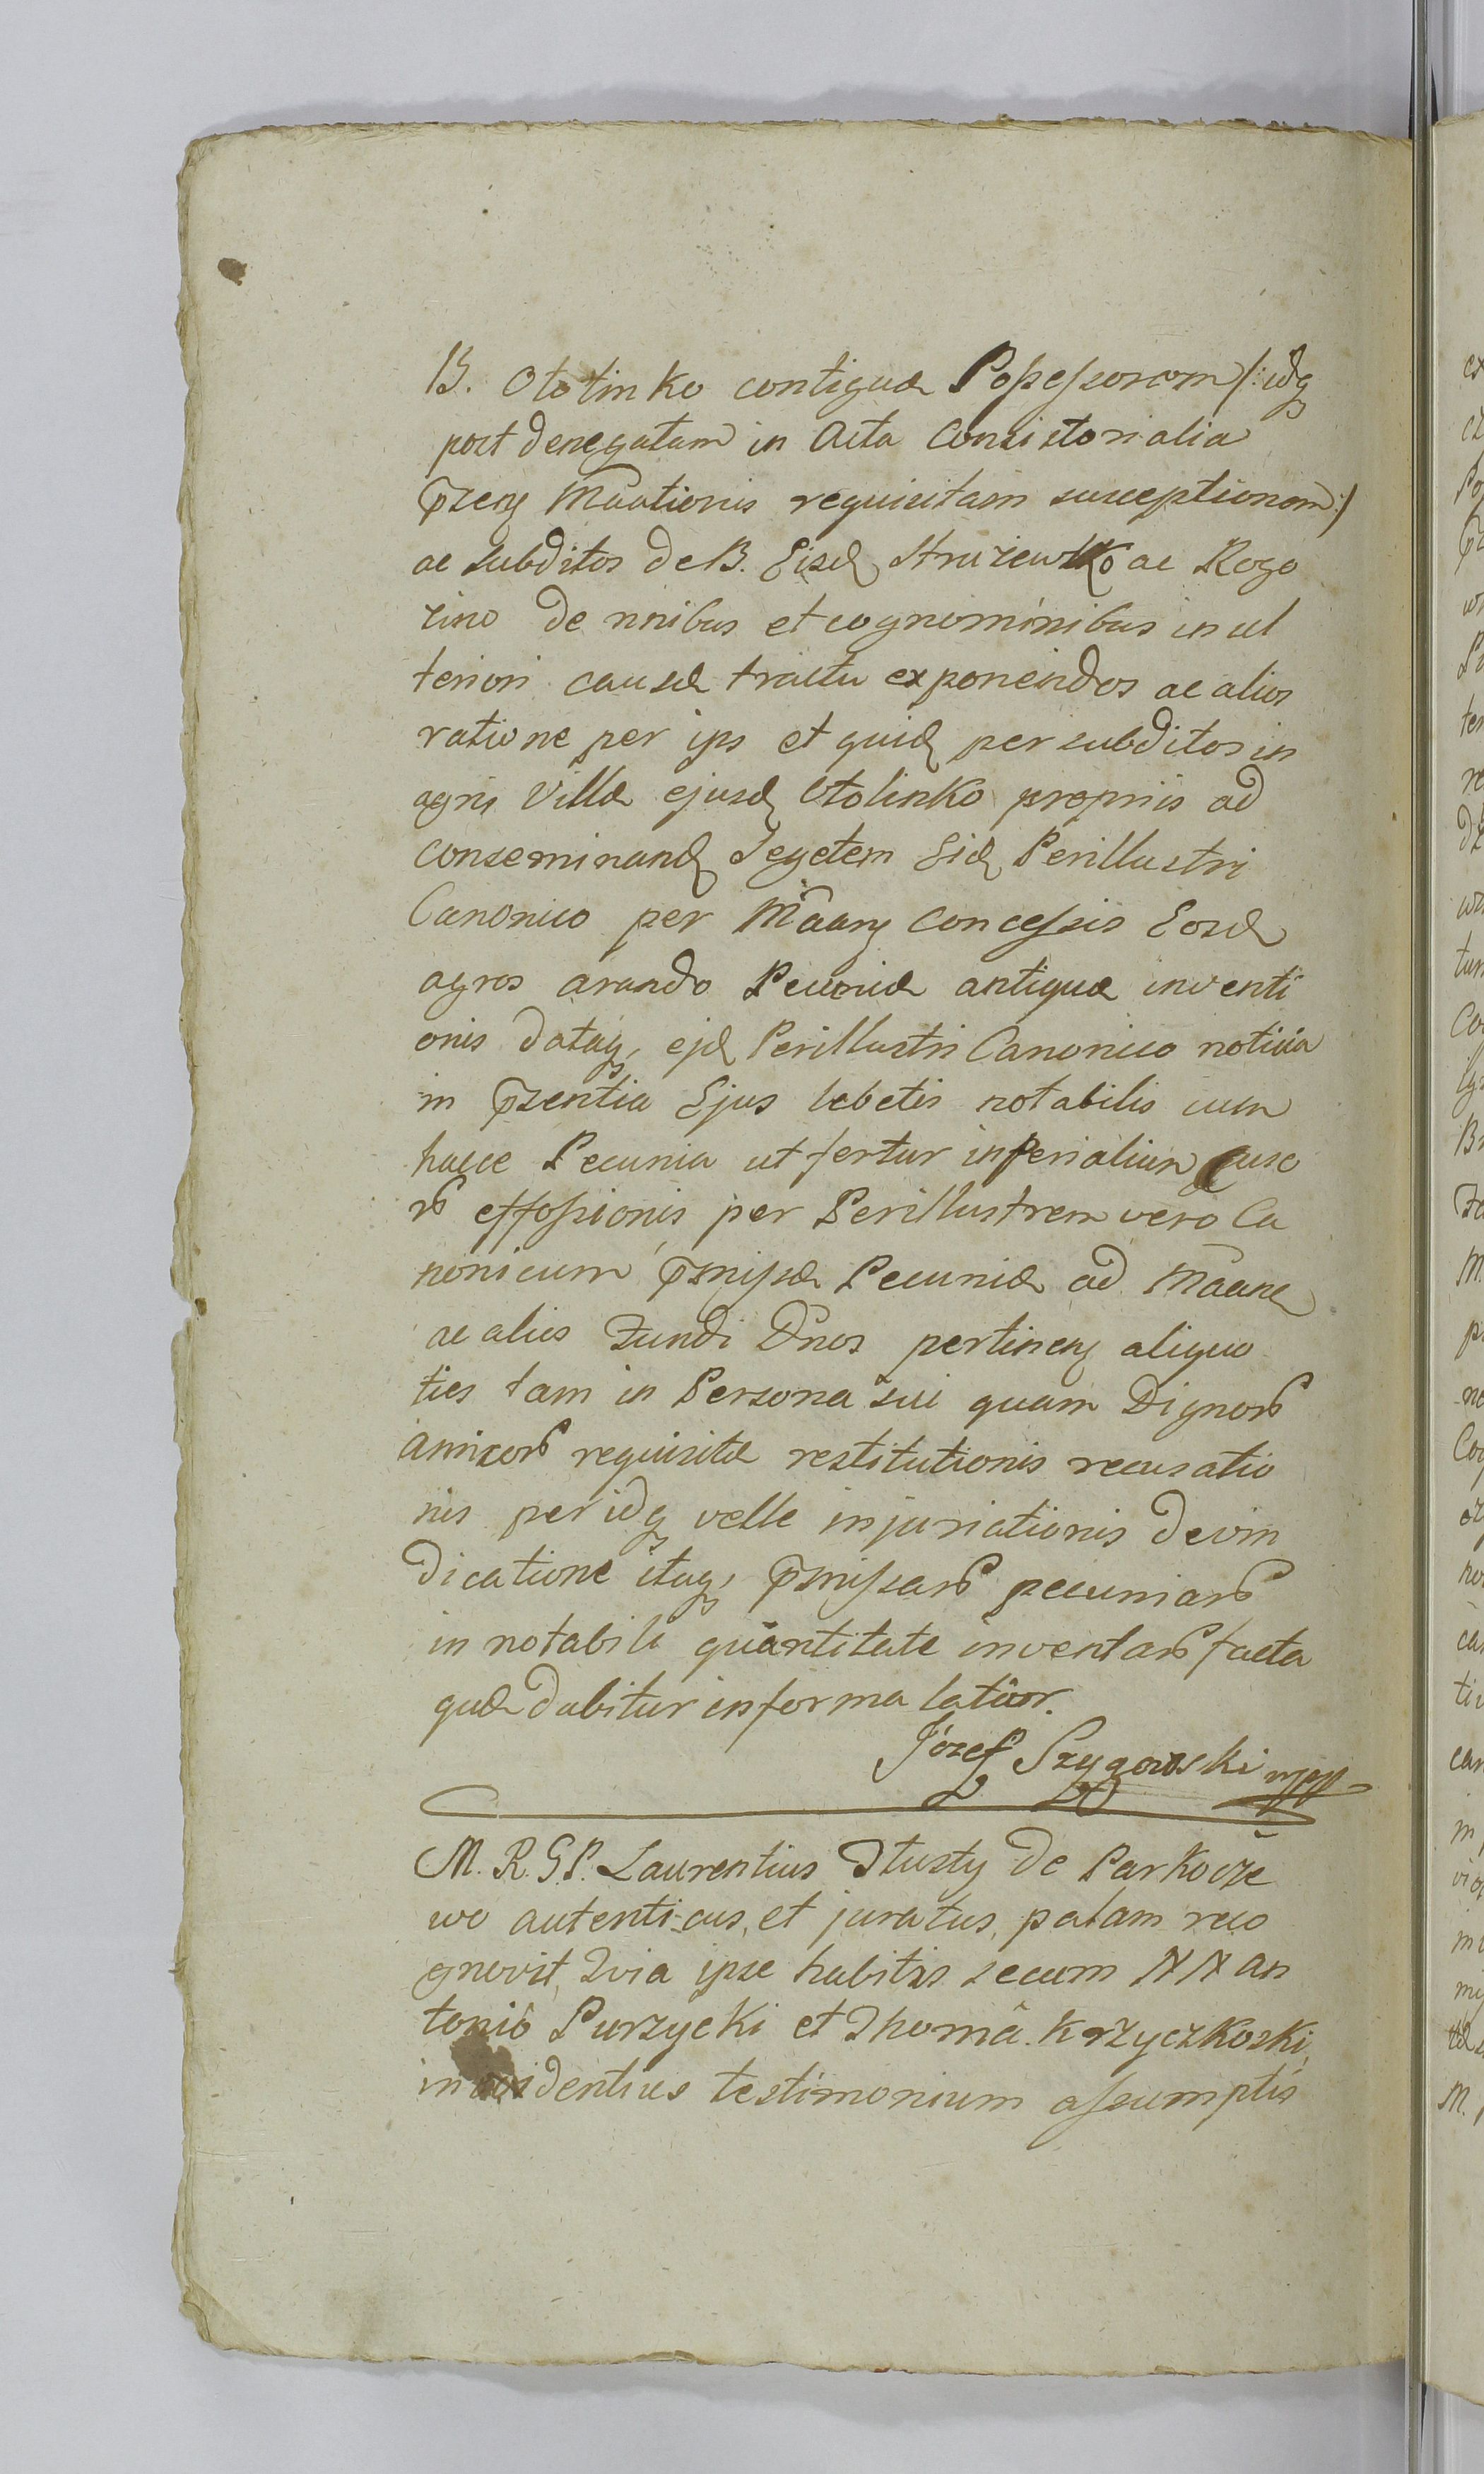 B. Ototinko contiguæ Possessorem /: idq
post denegatam in Acta Consistorialia
p̄seng Māationis requisitam susceptionem :/
ac subditos de B. Eisd Struzewko ac Rogo
zino de nnibus et cognominibus in ul
teriori causæ tractu exponendos ac alios
ratione per ips et quid per subditos in
agris Villæ ejusd Ctolinko propriis ad
conseminand Segetem Eid Perillustri
Canonico per M̄aang concessis Eosd
agros arando Pecuniæ antiquæ inventi
onis dataq, ejd Perillustri Canonico noticia
in p̄sentia Ejus lebetis notabilis cum
hacce Pecunia ut fertur inperialium
effossionis, per Perillustrem vero Ca
nonicum p̄missæ Pecuniæ ad M̄aane
ac alios Fundi Dnos pertineng aliquo
ties tam in Persona sui quam Dignor
amicor requisitæ restitutionis recusatio
nis per idq velle injuriationis devin
dicatione itaq, p̄missar pecuniar
in notabili quantitate inventar facta
quæ dabitur in forma latior.
Józef Szygowski mpp
M. R. G. P. Laurentius Tlusty de Parkocze
wo autenticus, et juratus, palam reco
gnovit, Quia ipse habitis secum NN An
tonio Purzycki et Thomâ Krzyczkoski,
in evidentius testimonium assumptis